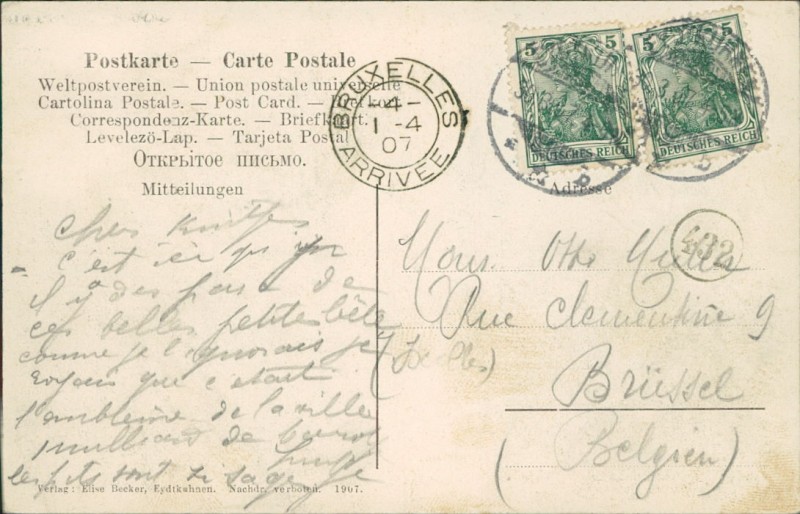 Postkarte — Carte Postale
Weltpostverein. — Union postale universelle
Cartolina Postale. — Post Card. — Brefkort
Correspondenz-Karte. — Briefkaart.
Levelezö-Lap. — Tarjeta Postal
Открытое письмо.
Mitteilungen
BRUXELLES
4-
1-4
07
ARRIVÉE
5 5
DEUTSCHES REICH
5 5
DEUTSCHES REICH
Adresse
432
c'est ici qu'
il y a des
ces belles petites bête
comme je l'ignorais je
croyais que c'était
l'emblème de la ville
1 milliard de
les pts sont
Mons. Otto Müller
Rue Clementine 9
(Ixelles)
Brüssel
(Belgien)
Verlag: Elise Becker, Eydtkuhnen. Nachdr. verboten. 1907.